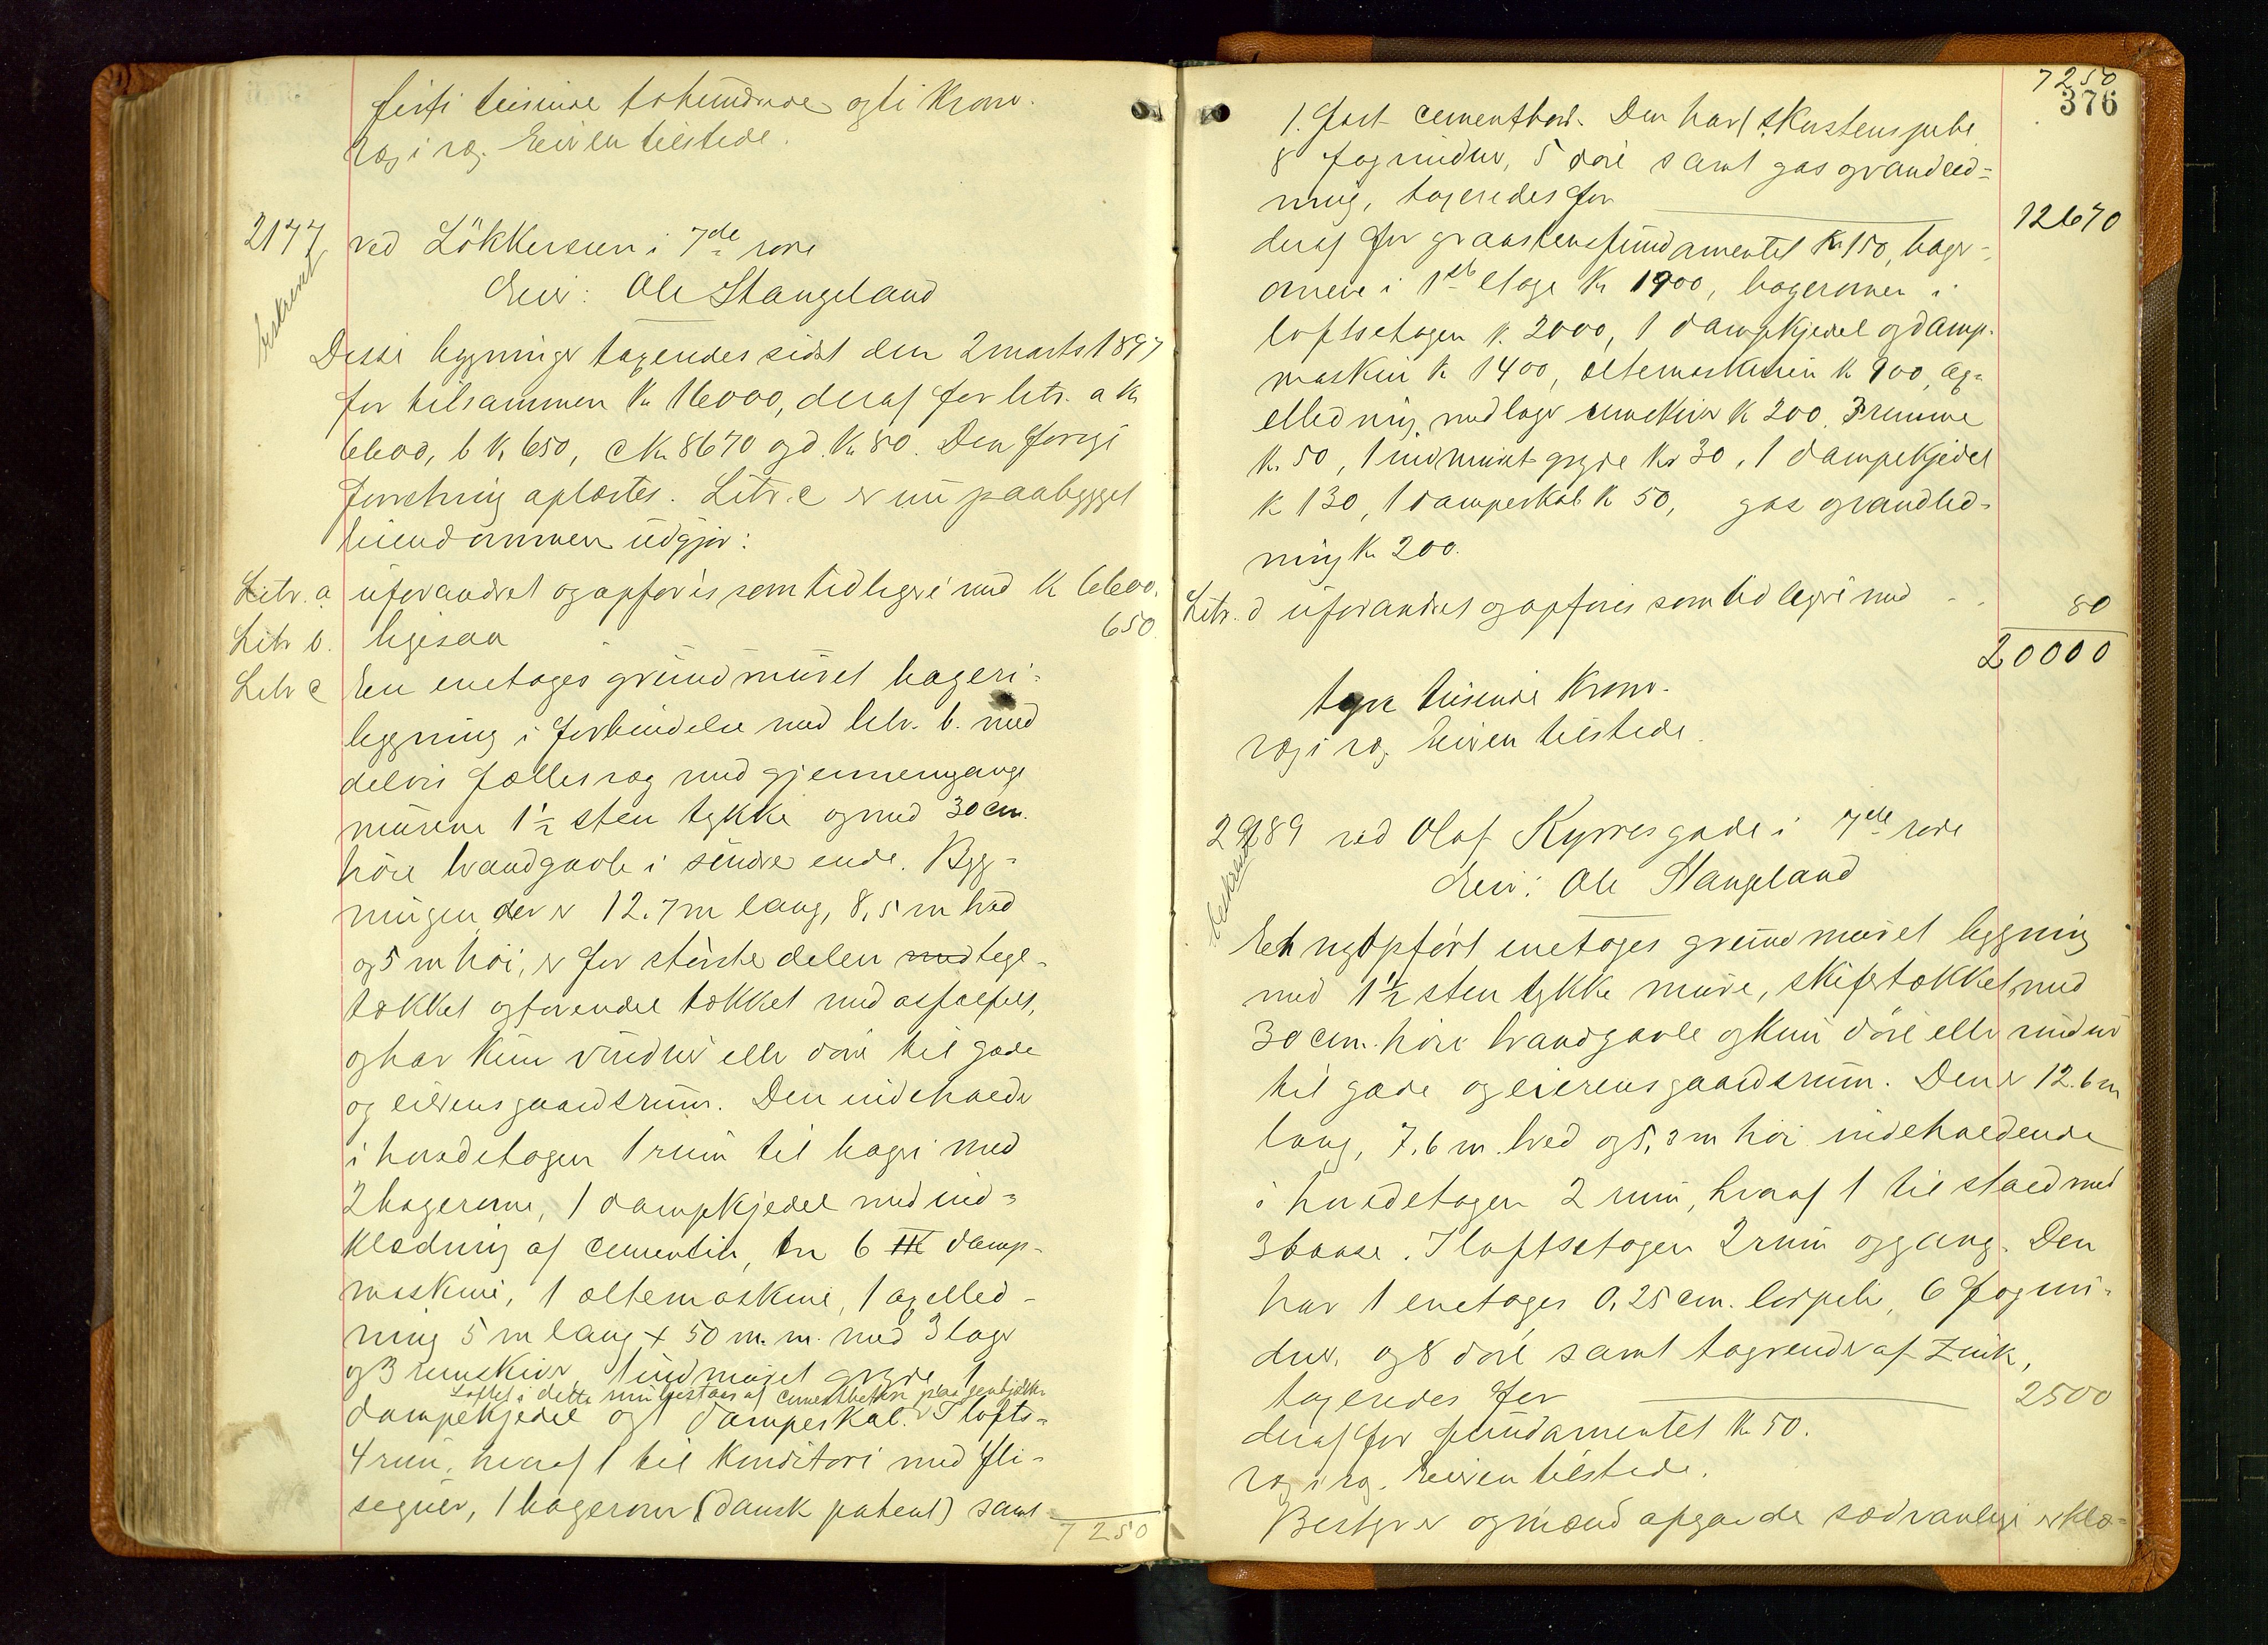 firti tusinde tohundrede og ti Kroner.
Væg i væg. Eieren tilstede.
2177 ved Lökkeveien i 7de rode
Extraheret
Eier: Ole Stangeland
Disse bygninger taxeredes sidst den 2 marts 1897
for tilsammen Kr 16000, deraf for litr. a Kr
6600, b Kr 650, c Kr. 8670 og d. Kr 80. Den forrige
forretning oplæstes. Litr. c er nu paabygget
Eiendommen udgjør:
Litr. a uforandret og opføres som tidligere med Kr 6600.
Litr b. ligesaa 650.
Litr c En enetages grundmuret bageri-
bygning i forbindelse med litr. b. med
delvis fælles væg med gjennemgange
murene 1 1/2 sten tykke og med 30 cm.
höie brandgavle i söndre ende. Byg-
ningen der er 12.7 m lang, 8,5 m bred
og 5 m höi, er for störstedelen med tegl-
tækket og forendel tækket med asfaltfilt,
og har kun vinduer eller döre til gade
og eierens gaardsrum. Den indeholder
i hovedetagen 1 rum til bageri med
2 bagerovne, 1 dampkjedel med ind-
klædning af cementin, en 6 HK damp-
maskine, 1 æltemaskine, 1 axelled-
ning 5 m lang + 50 m.m. med 3 lager
og 3 remskiver, 1 indmuret gryde, 1
Loftet i dette rum bestaar af cementbeton paa jernbjælker
dampekjedel og 1 dampeskab. I lofts-
4 rum, hvoraf 1 til konditori med fli-
segulv, 1 bagerovn (dansk patent) samt
7250
7250
376
1. fast cementbord. Den har 1 skorstenspibe
8 fag vinduer, 5 döre samt gas og vandled-
ning, taxeredes for 12670
deraf for graastensfundamentet Kr 150, bager-
ovnene i 1ste etage Kr 1900, bagerovnen i
loftsetagen Kr. 2000, 1 dampkjedel og damp-
maskin Kr 1400, æltemaskinen Kr 900, ax-
elledning med lager remskiver Kr 200. 3 remme
Kr. 50, 1 indmuret gryde Kr 30, 1 dampekjedel
Kr 130, 1 dampeskab Kr 50, gas og vandled-
ning Kr 200.
Litr. d uforandret og opføres som tidligere med 80
20000
tyve tusinde Kroner.
væg i væg. Eieren tilstede.
2989 ved Olaf Kyrres gade i 7de rode
Extraheret
Eier: Ole Stangeland
En nyopfört enetages grundmuret bygning
med 1 1/2 sten tykke mure, skifertækket, med
30 cm. höie brandgavle og kun döre eller vinduer
til gade og eierens gaardsrum. Den er 12.6 m
lang, 7.6 m bred og 5,3 m höi indeholdende
i hovedetagen 2 rum, hvoraf 1 til stald med
3 baase. I loftsetagen 2 rum og gang. Den
har 1 enetages 0,25 cm. löspibe, 6 fag vin-
duer, og 8 döre samt tagrender af Zink,
taxeredes for 2500
deraf for fundamentet Kr 50.
væg i væg. Eieren tilstede.
Bestyrer og mænd afgav de sædvanlige erklæ-